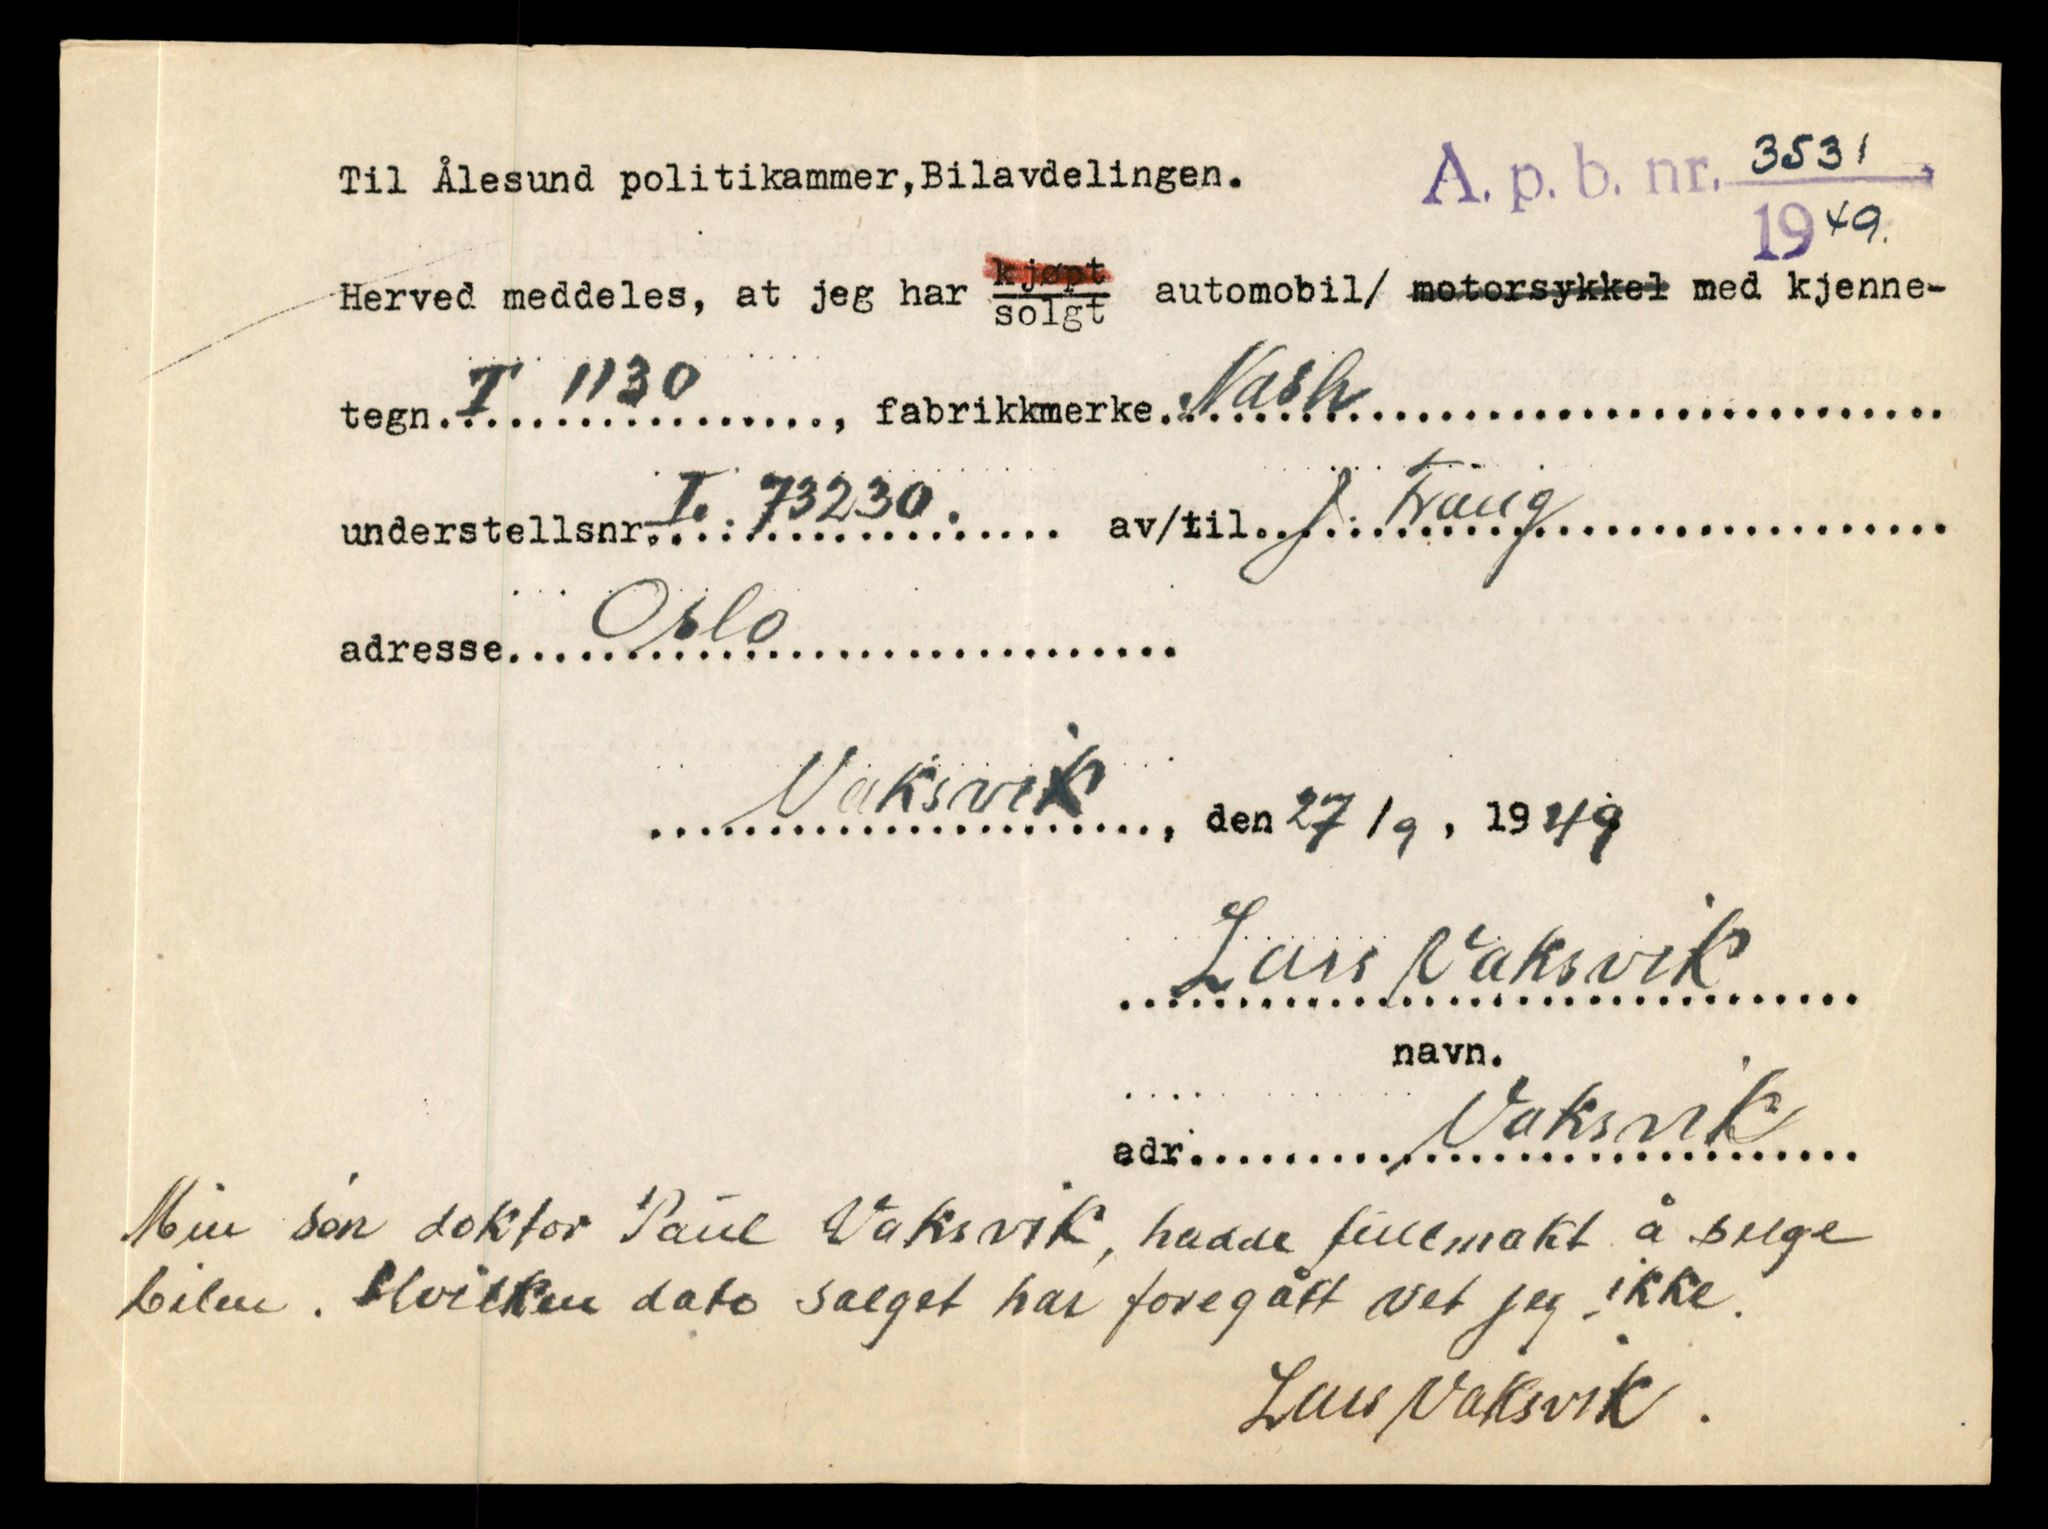 Til Ålesund politikammer,Bilavdelingen.
A. p. b. nr. 3531
1949.
Herved meddeles, at jeg har kjøpt/solgt automobil/ motorsykkel med kjenne-
tegn. T 1130 , fabrikkmerke. Nash
understellsnr. I. 73230. av/til. J.
adresse. Oslo
Vaksvik, den 27/9, 1949
Lars Vaksvik
navn.
adr. Vaksvik
Min søn doktor Paul Vaksvik, hadde fullmakt å selge
bilen. Hvilken dato salget har foregått vet jeg ikke.
Lars Vaksvik.